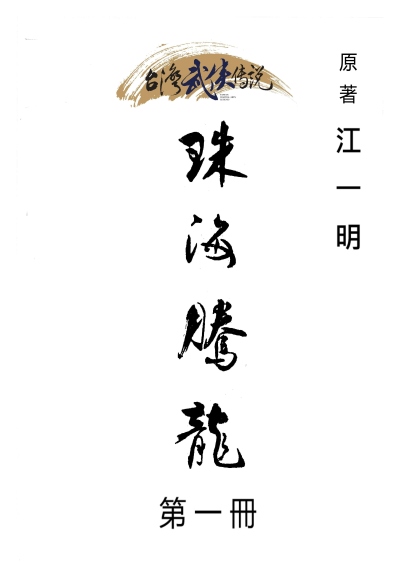 台灣武侠传说
原著 江一明
珠海騰龍
第一冊